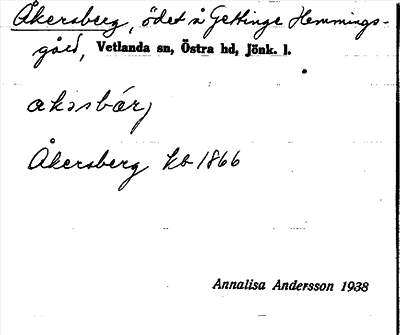 Åkersberg, ödet å Gettinge Hemmings-
gård, Vetlanda sn, Östra hd, Jönk. l.
akasbärj
Åkersberg kb 1866
Annalisa Andersson 1938